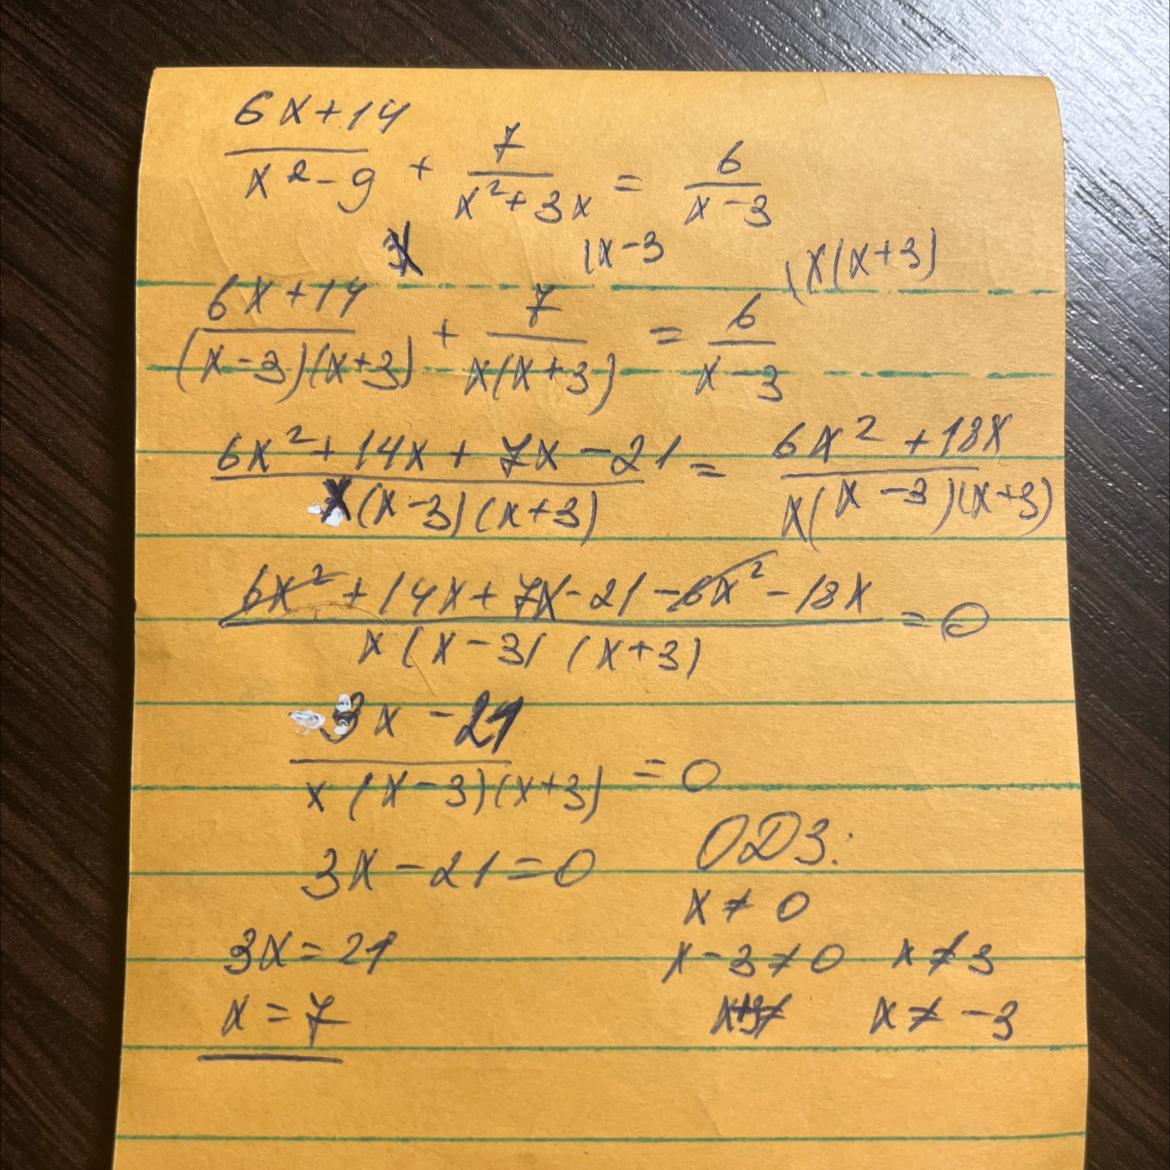 (6x+14)/(x²-9) + 7/(x²+3x) = 6/(x-3)
x (x-3 (x(x+3)
(6x+14)/((x-3)(x+3)) + 7/(x(x+3)) = 6/(x-3)
(6x²+14x+7x-21)/(x(x-3)(x+3)) = (6x²+18x)/(x(x-3)(x+3))
(6x²+14x+7x-21-6x²-18x)/(x(x-3)(x+3)) = 0
(3x-21)/(x(x-3)(x+3)) = 0
3x-21=0
ОДЗ:
x≠0
3x=21
x-3≠0 x≠3
x=7
x+3≠ x≠-3